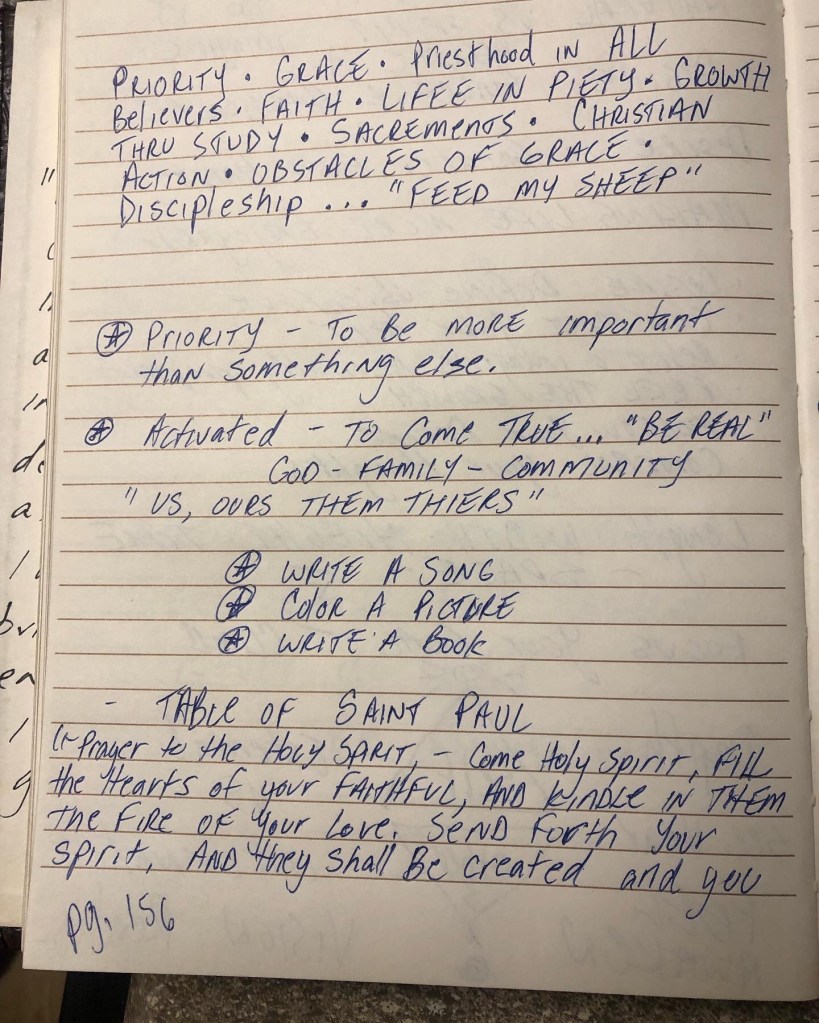 PRIORITY • GRACE • Priesthood IN ALL
Believers • FAITH • LIFEE IN PIETY • GROWTH
THRU STUDY • SACREMENTS • CHRISTIAN
ACTION • OBSTACLES OF GRACE •
Discipleship ... "FEED MY SHEEP"
PRIORITY - To Be MORE important
than something else.
Activated - TO Come TRUE ... "BE REAL"
GOD - FAMILY - COMMUNITY
" US, OURS THEM THIERS"
WRITE A SONG
Color A PICTURE
WRITE A Book
- TABLE OF SAINT PAUL
Prayer to the HOLY SPIRIT, - Come Holy Spirit, FILL
the Hearts of your FAITHFUL, AND KINDLE IN THEM
THE FIRE OF Your Love. SEND Forth Your
Spirit, AND they shall Be created and you
pg. 156